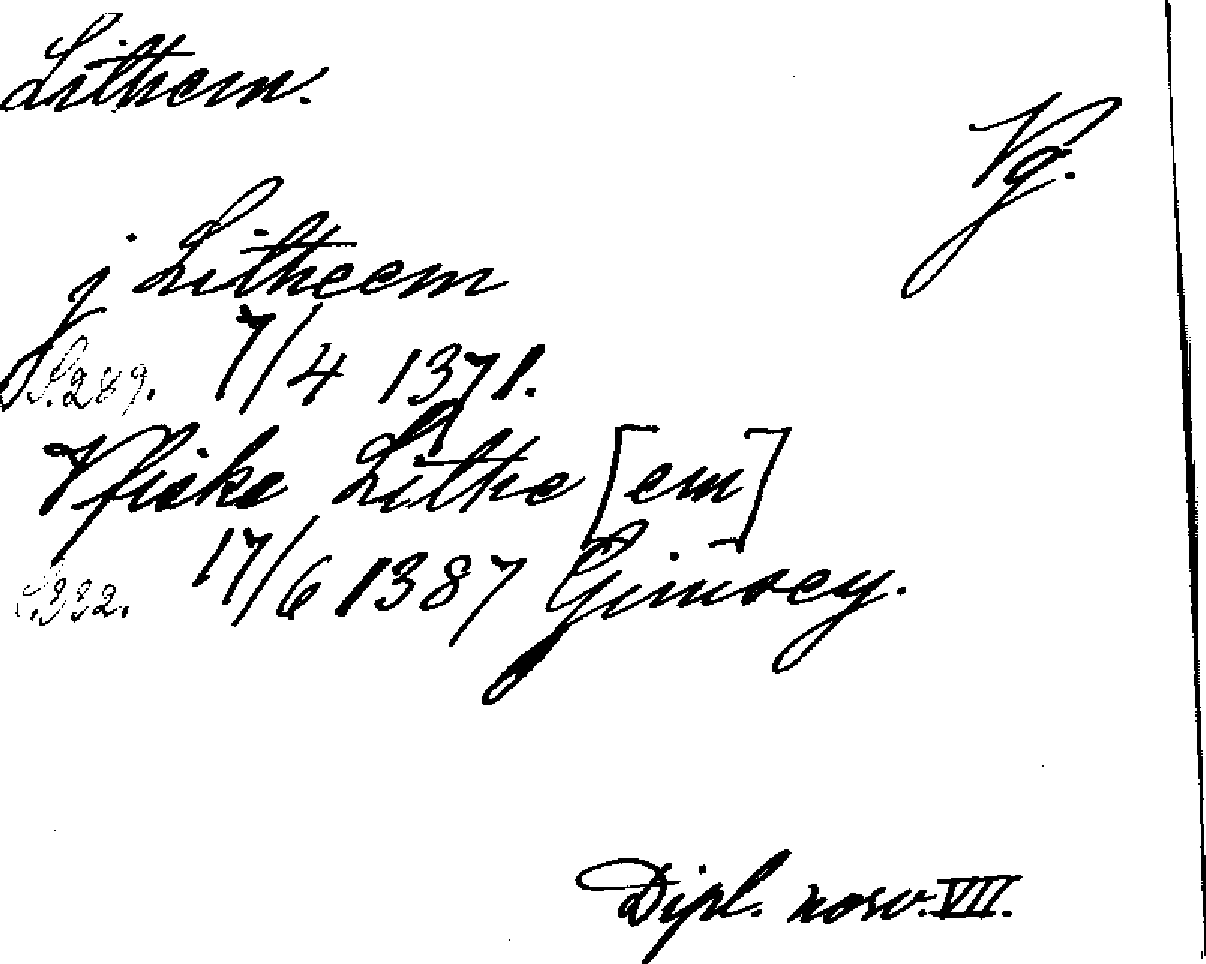 Lithem.
Vg.
j Litheem
S.289. 7/4 1371.
Vfiske Lithe [em]
S.332. 17/6 1387 Gimsey.
Dipl. norv. VII.